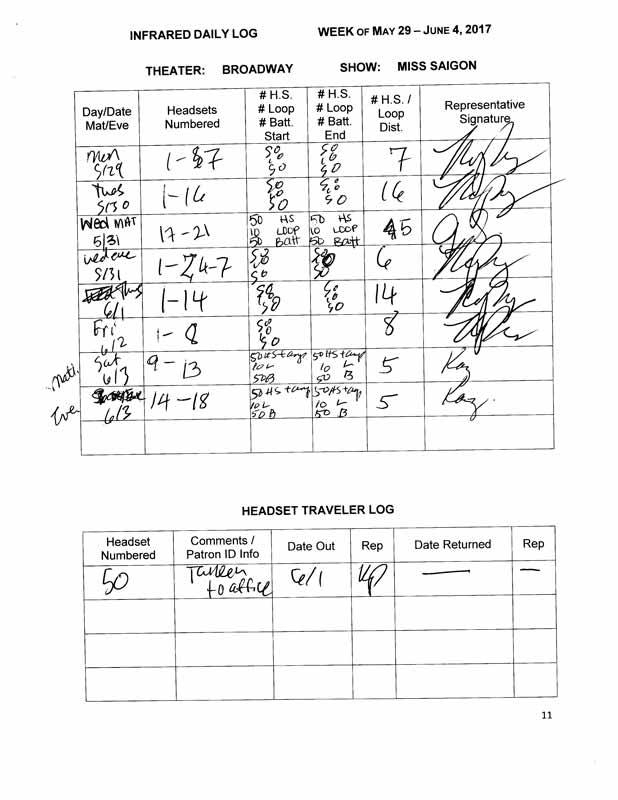 INFRARED DAILY LOG WEEK OF MAY 29 – JUNE 4, 2017
THEATER: BROADWAY SHOW: MISS SAIGON
Day/Date Mat/Eve Headsets Numbered # H.S. # Loop # Batt. Start # H.S. # Loop # Batt. End # H.S. / Loop Dist. Representative Signature
Mon 5/29 1-7 50 10 50 50 10 50 7
Tues 5/30 1-16 50 10 50 50 10 50 16
Wed MAT 5/31 17-21 50 HS 10 LOOP 50 Batt 50 HS 10 LOOP 50 Batt 5
wed eve 5/31 50 10 50 50 6
Thus 6/1 1-14 50 10 50 50 10 50 14
Fri 6/2 1-8 50 10 50 8
Matt. Sat 6/3 9-13 50HS+amp 10L 50B 50HS+amp 10 L 50 B 5 Kay
Eve 6/3 14-18 50HS+amp 10L 50B 50HS+amp 10 L 50 B 5 Kay.
HEADSET TRAVELER LOG
Headset Numbered Comments / Patron ID Info Date Out Rep Date Returned Rep
50 Taken to office 6/1 KP — —
11